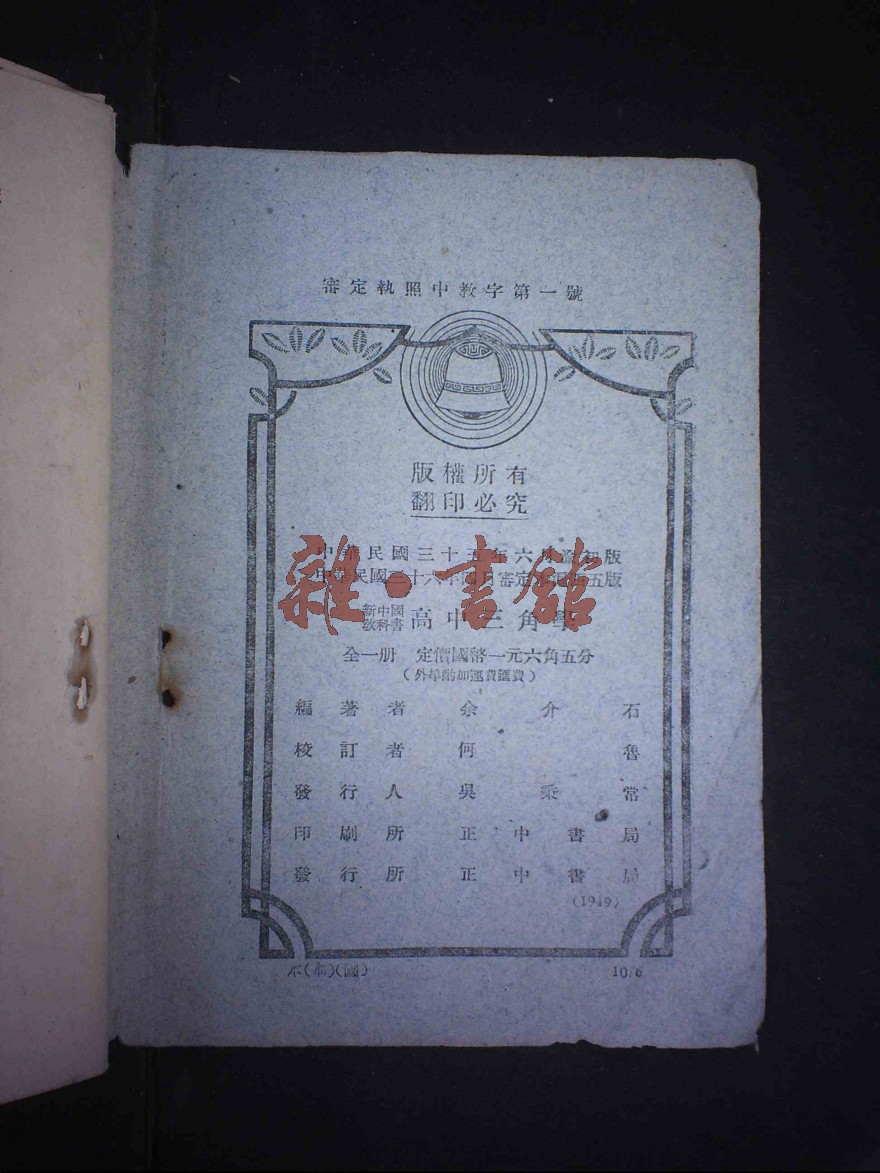 審定執照中教字第一號
版權所有
翻印必究
中華民國三十五年六月滬初版
中華民國三十六年四月審定本滬五版
雜·書館
新中國
教科書
高中三角學
全一册 定價國幣一元六角五分
（外埠酌加運費匯費）
編著者 余介石
校訂者 何魯
發行人 吳秉常
印刷所 正中書局
發行所 正中書局
(1919)
本( )(國)
10/6